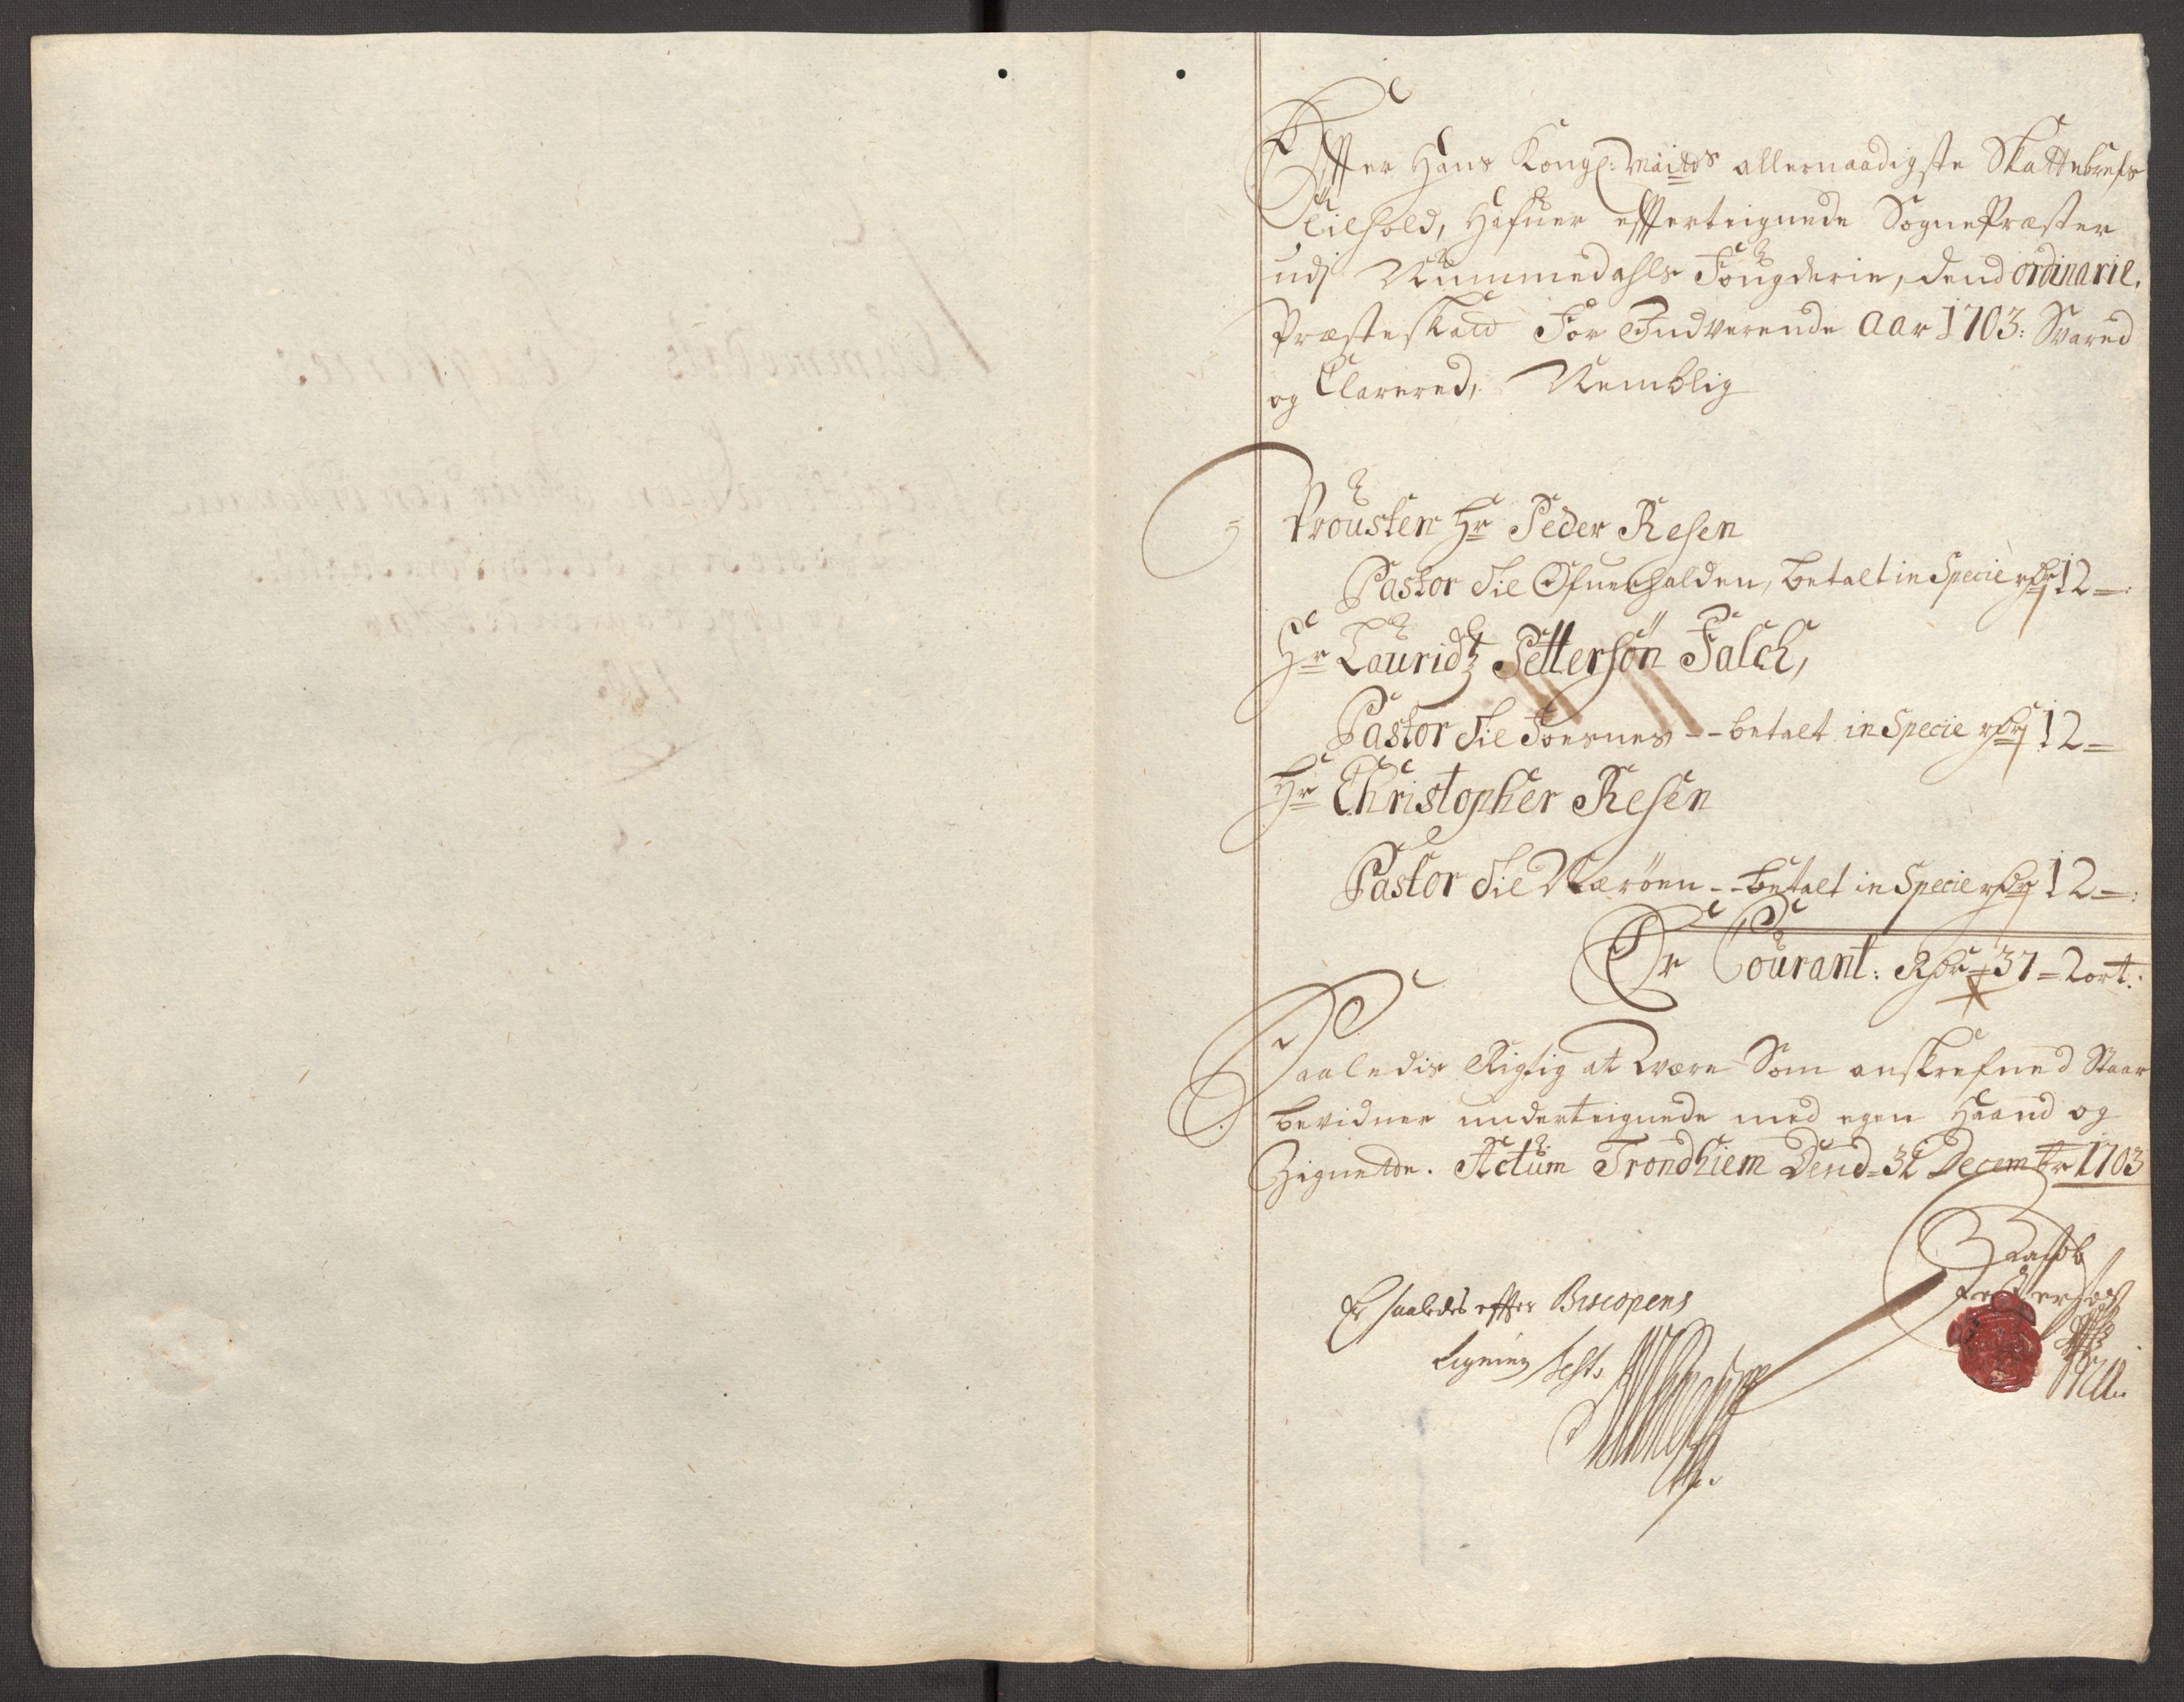 Effter Hans Kongl: Maitts allernaadigste Skattebrefs
tilhold, Hafuer effterteignede Sognepræster
udj Nummedahls Fougderie, dend ordinarie.
Præsteskatt For Indverende Aar 1703: Svared
og Clarered, Nemblig
Prousten Hr Peder Resen
Pastor til Ofuerhalden, betalt in Specie rdr 12 –:
Hr Lauridtz Pettersøn Falch,
Pastor til Foesnes -- betalt in Specie rdr 12 –
Hr Christopher Resen
Pastor til Nærøen -- betalt in Specie rdr 12 –:
Er Courant: Rdr 37 – 2 ort:
Saaledis Rigtig at være Som anskrefued Staar
bevidner underteignede med egen Haand og
Zignette. Actum Trondhiem Dend 31 Decembr 1703
Er saaledes effter Biscopens
Ligning